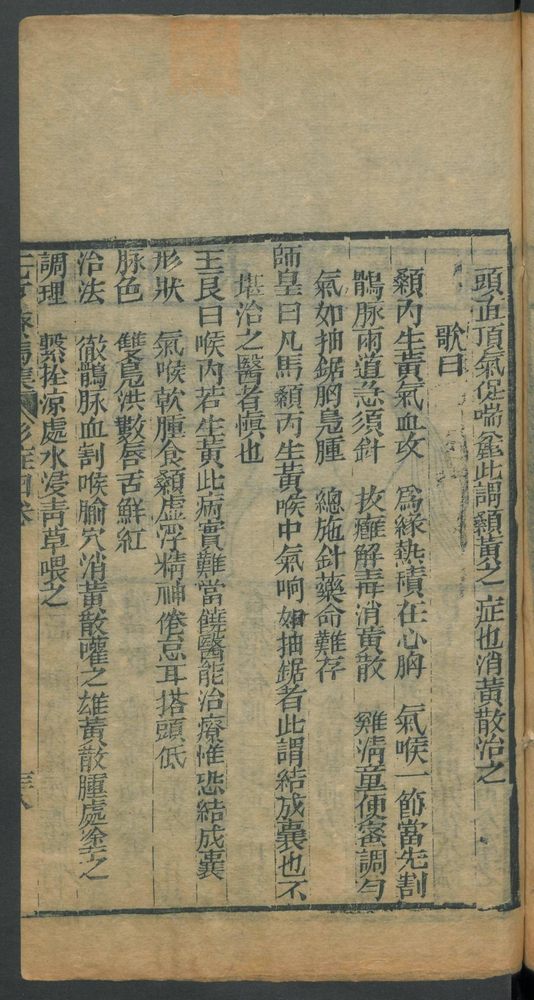 頭血頂氣促喘麄此謂顙黃之症也消黃散治之
歌曰
顙內生黃氣血攻 爲緣熱積在心胸 氣喉一節當先割
鶻脉兩道急須針 拔㿈解毒消黃散 雞淸童便蜜調勻
氣如抽鋸胸鳬腫 總施針藥命難存
師皇曰凡馬顙內生黃喉中氣响如抽鋸者此謂結成囊也不
堪治之醫者慎也
王良曰喉內若生黃此病實難當饒醫能治療惟恐結成囊
形狀 氣喉軟腫食顙虛浮精神倦怠耳搭頭低
脉色 雙鳬洪數唇舌鮮紅
治法 徹鶻脉血割喉腧穴消黃散嚾之雄黃散腫處塗之
調理 繫拴凉處水浸靑草喂之